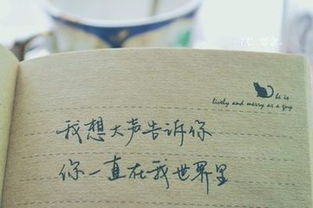 is
lively and merry as a
我想大声告诉你
你一直在我世界里